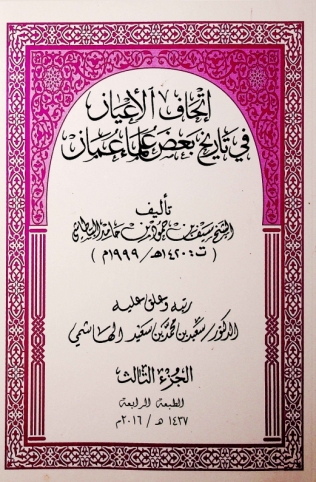 إتحاف الأعيان
في تاريخ بعض علماء عمان
تأليف
الشيخ سيف بن حمود بن حامد البطاشي
(ت: ١٤٢٠هـ/١٩٩٩م)
رتبه وعلق عليه
الدكتور سعيد بن محمد بن سعيد الهاشمي
الجزء الثالث
الطبعة الرابعة
١٤٣٧ هـ / ٢٠١٦م